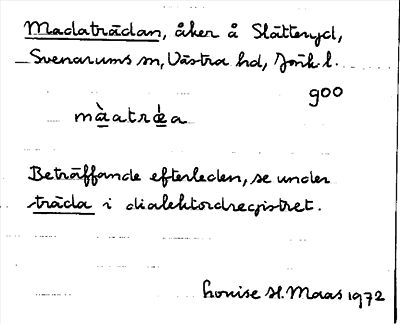 Madaträdan, åker å Slättenyd,
Svenarums sn, Västra hd, Jönk. l.
900
màatrǿa
Beträffande efterleden, se under
träda i dialektordregistret.
Louise H. Maas 1972